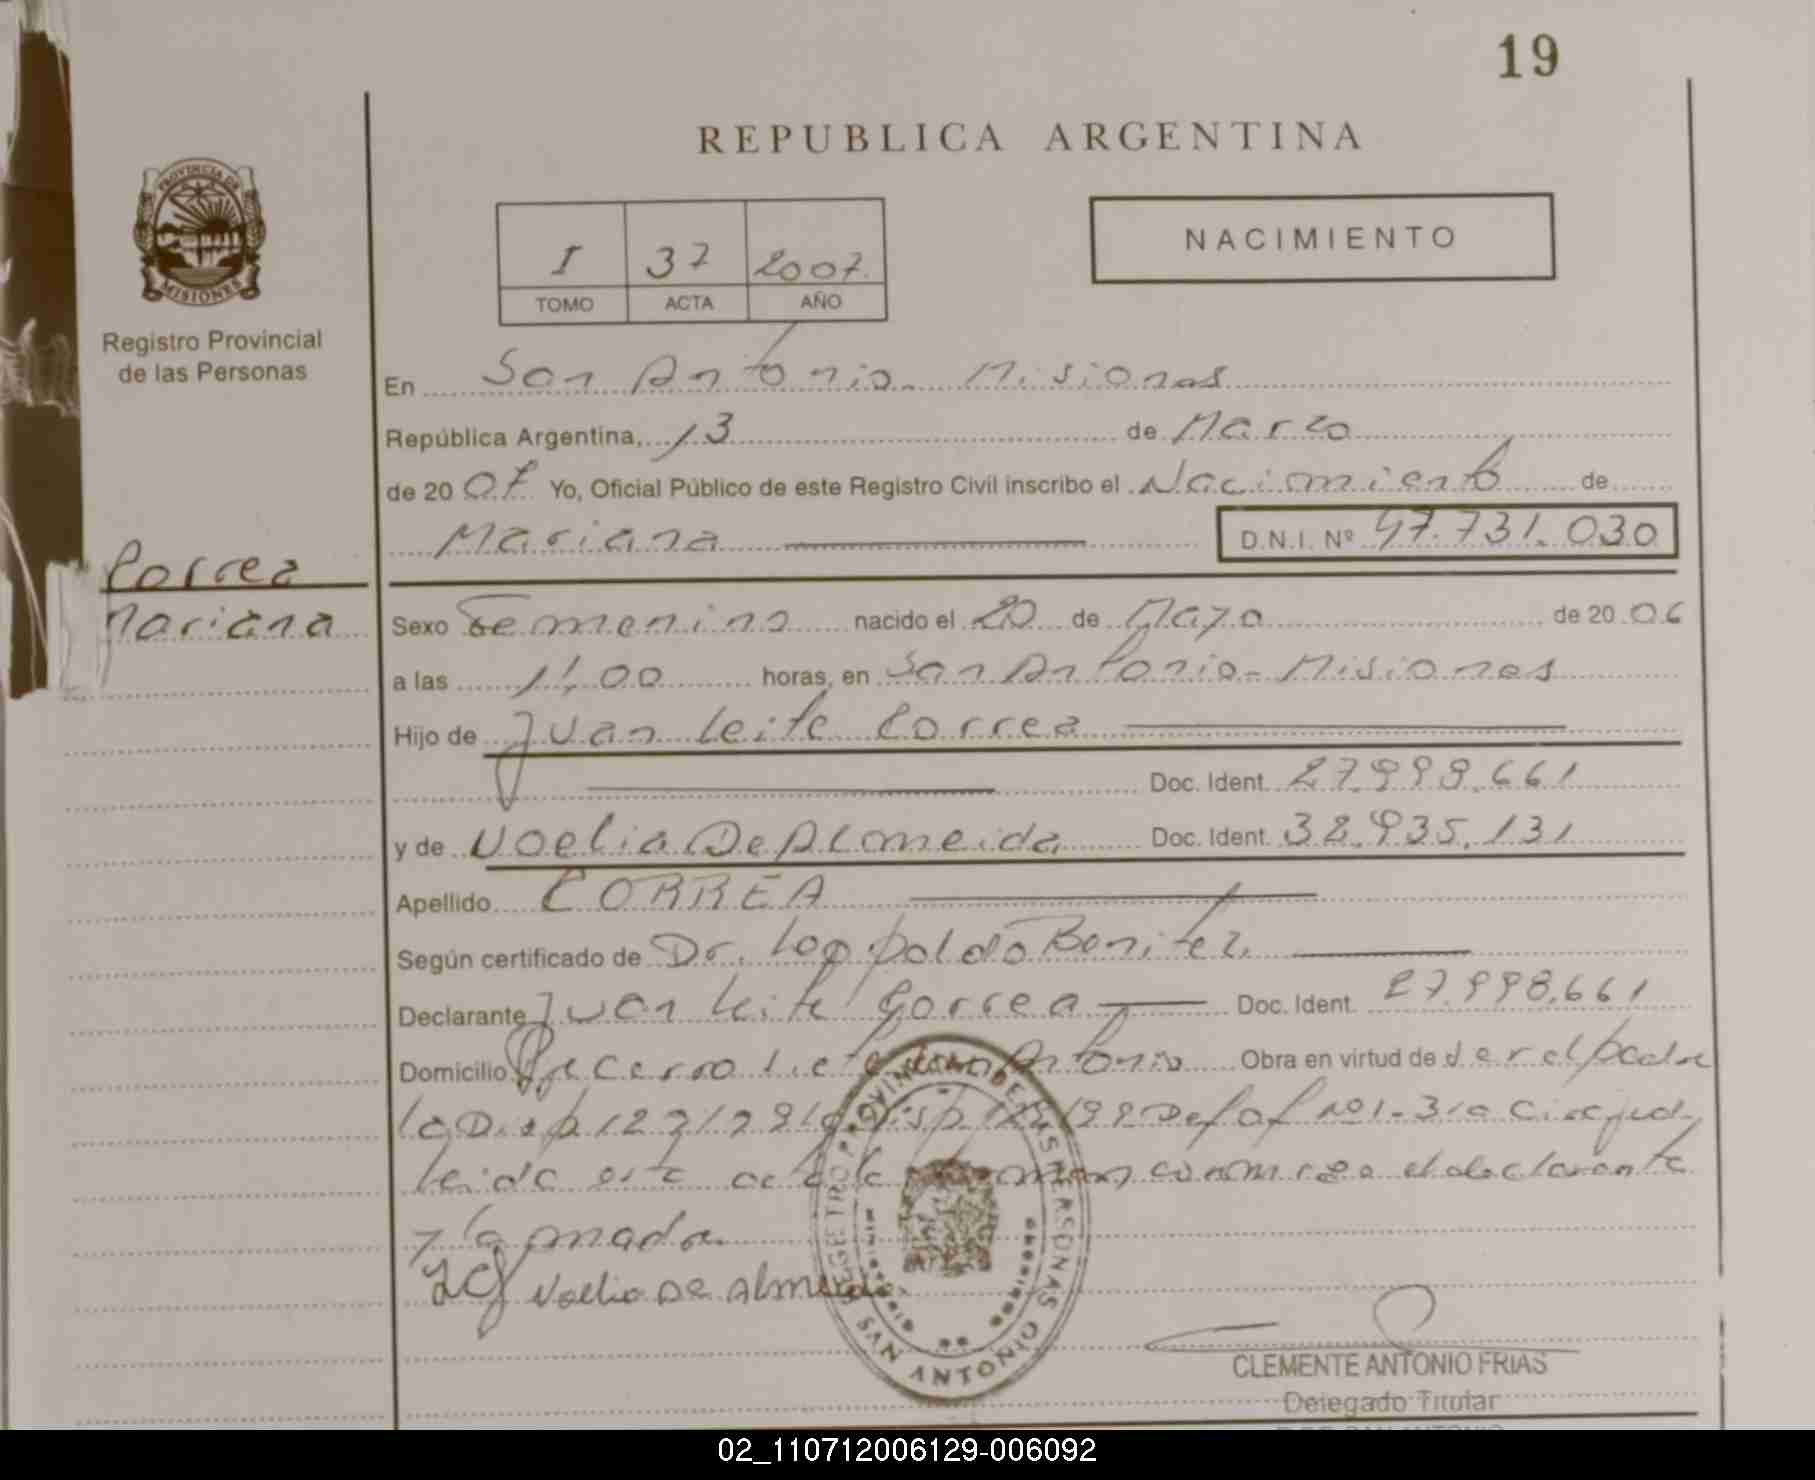 19
REPUBLICA ARGENTINA
PROVINCIA DE
MISIONES
Registro Provincial
de las Personas
I 37 2007.
TOMO ACTA AÑO
NACIMIENTO
En San Antonio - Misiones
República Argentina, 13 de Marzo
de 20 07 Yo, Oficial Público de este Registro Civil inscribo el Nacimiento de
Mariana D.N.I. Nº 47.731.030
Correa
Mariana
Sexo Femenino nacido el 20 de Mayo de 20 06
a las 11,00 horas, en San Antonio - Misiones
Hijo de Juan Leite Correa
Doc. Ident. 27.998.661
y de Noelia De Almeida Doc. Ident. 38.935.131
Apellido CORREA
Según certificado de Dr. Leopoldo Benitez
Declarante Juan Leite Correa Doc. Ident. 27.998.661
Domicilio San Antonio Obra en virtud de ser el padre
Leida esta acta la firman conmigo el declarante
y la madre
Noelia De Almeida
REGISTRO PROVINCIAL DE LAS PERSONAS
SAN ANTONIO
CLEMENTE ANTONIO FRIAS
Delegado Titular
02_110712006129-006092